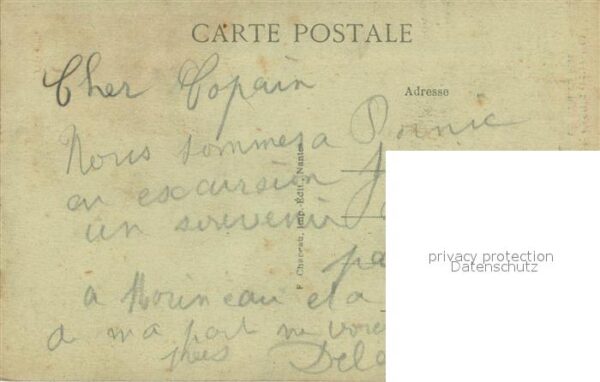 CARTE POSTALE
Adresse
Cher Copain
Nous sommes a Pornic
en excursion
un souvenir
a et a
de ma part ne
F. Chapeau, Imp.-Edit., Nantes
privacy protection
Datenschutz